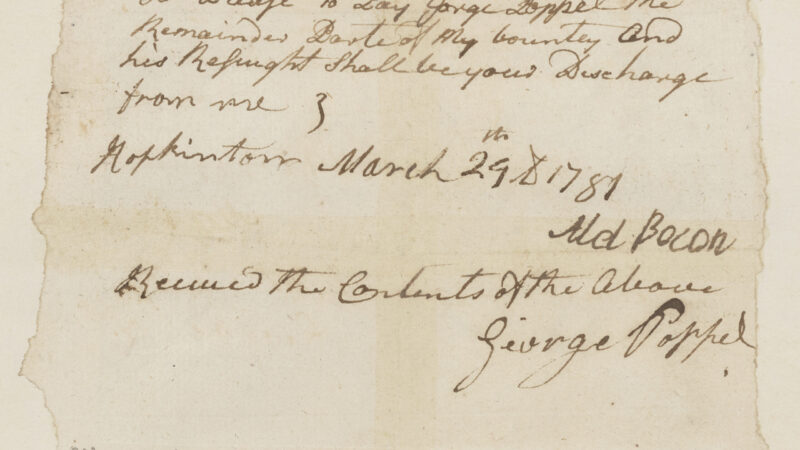 Please to Pay George Poppel the
Remainder Parte of My bountey and
his Resiught Shall be your Discharge
from me
Hopkinton March 29th D 1781
Bacon
Receved the Contents of the Above
George Poppel